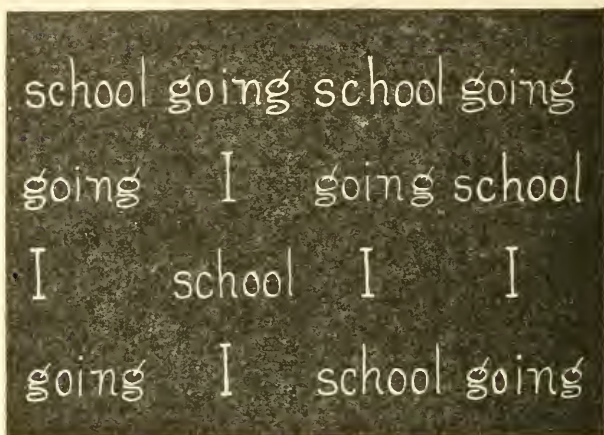 school going school going
going I going school
I school I I
going I school going